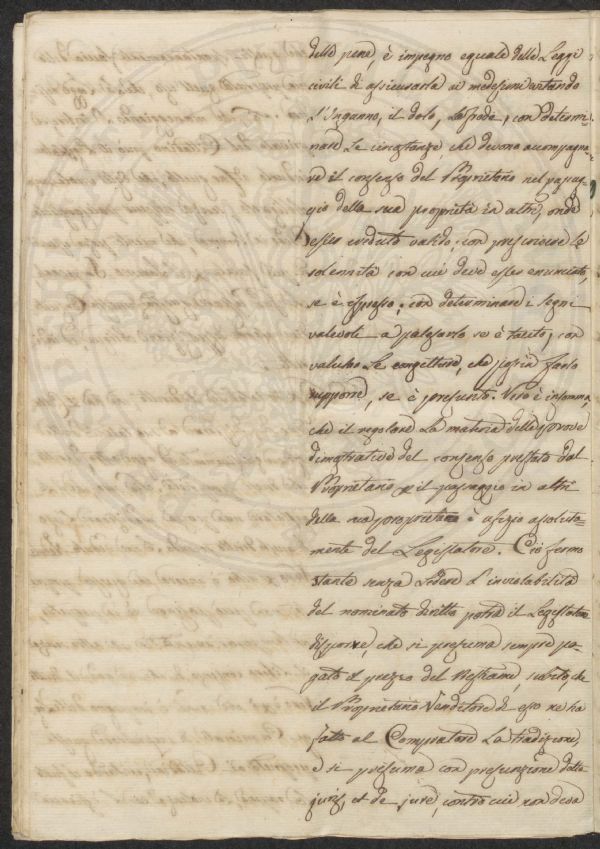 delle pene, è impegno eguale delle Leggi
civili di assicurarla ai medesimi vietando
l'Inganno, il dolo, la frode; con determi-
nare le circostanze, che devono accompagna-
re il consenso del Proprietario nel passag-
gio della sua proprietà in altri, onde
esser creduto valido; con prescrivere le
solennità con cui deve esser enunciato,
se è espresso; con determinare i segni
valevoli a palesarlo se è tacito; con
valutar le congetture, che possin farlo
supporre, se è presunto. Vero è insomma,
che il regolare la materia delle prove
dimostrative del consenso prestato dal
Proprietario per il passaggio in altri
della sua proprietà è ufizio assoluta-
mente del Legislatore. Ciò fermo
stante senza ledere l'inviolabilità
del nominato diritto potrà il Legislatore
disporre, che si presuma sempre pa-
gato il prezzo del Bestiame, subito che
il Proprietario Venditore di esso ne ha
fatto al Compratore la tradizione,
e si presuma con presunzione detta
juris, et de jure, contro cui non deva